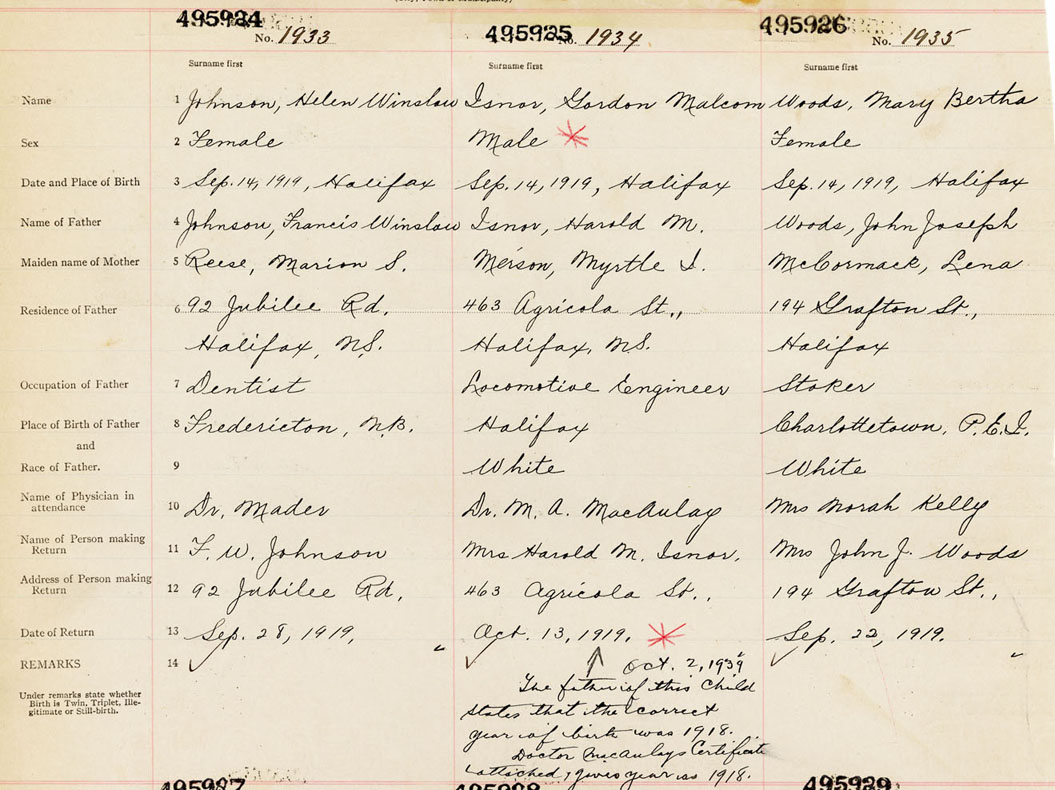 495924
No. 1933
495925
No. 1934
495926
No. 1935
Surname first
Surname first
Surname first
Name 1 Johnson, Helen Winslow Isnor, Gordon Malcom Woods, Mary Bertha
Sex 2 Female Male Female
Date and Place of Birth 3 Sep. 14, 1919, Halifax Sep. 14, 1919, Halifax Sep. 14, 1919, Halifax
Name of Father 4 Johnson, Francis Winslow Isnor, Harold M. Woods, John Joseph
Maiden name of Mother 5 Reese, Marion S. Merson, Myrtle I. McCormack, Lena
Residence of Father 6 92 Jubilee Rd. 463 Agricola St., 194 Grafton St.,
Halifax, N.S. Halifax, N.S. Halifax
Occupation of Father 7 Dentist Locomotive Engineer Stoker
Place of Birth of Father 8 Fredericton, N.B. Halifax Charlottetown, P.E.I.
and
Race of Father. 9 White White
Name of Physician in
attendance 10 Dr. Mader Dr. M. A. MacAulay Mrs Norah Kelly
Name of Person making
Return 11 F. W. Johnson Mrs Harold M. Isnor, Mrs John J. Woods
Address of Person making
Return 12 92 Jubilee Rd, 463 Agricola St., 194 Grafton St.,
Date of Return 13 Sep. 28, 1919, Oct. 13, 1919. Sep. 22, 1919.
REMARKS 14
Under remarks state whether
Birth is Twin, Triplet, Ille-
gitimate or Still-birth.
Oct. 2, 1939
The father of this child
states that the correct
year of birth was 1918.
Doctor MacAulays Certificate
attached, gives year as 1918.
495927
495928
495929